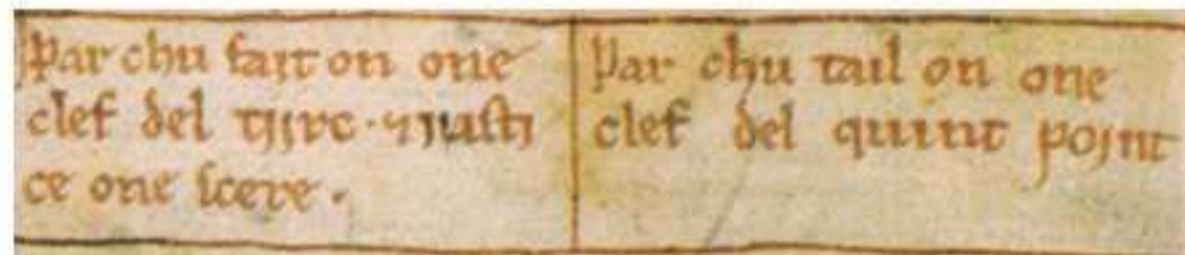 par chu fait on one
clef del tijrc · ⁊ justi
ce one scere .
par chu tail on one
clef del quint pojnt